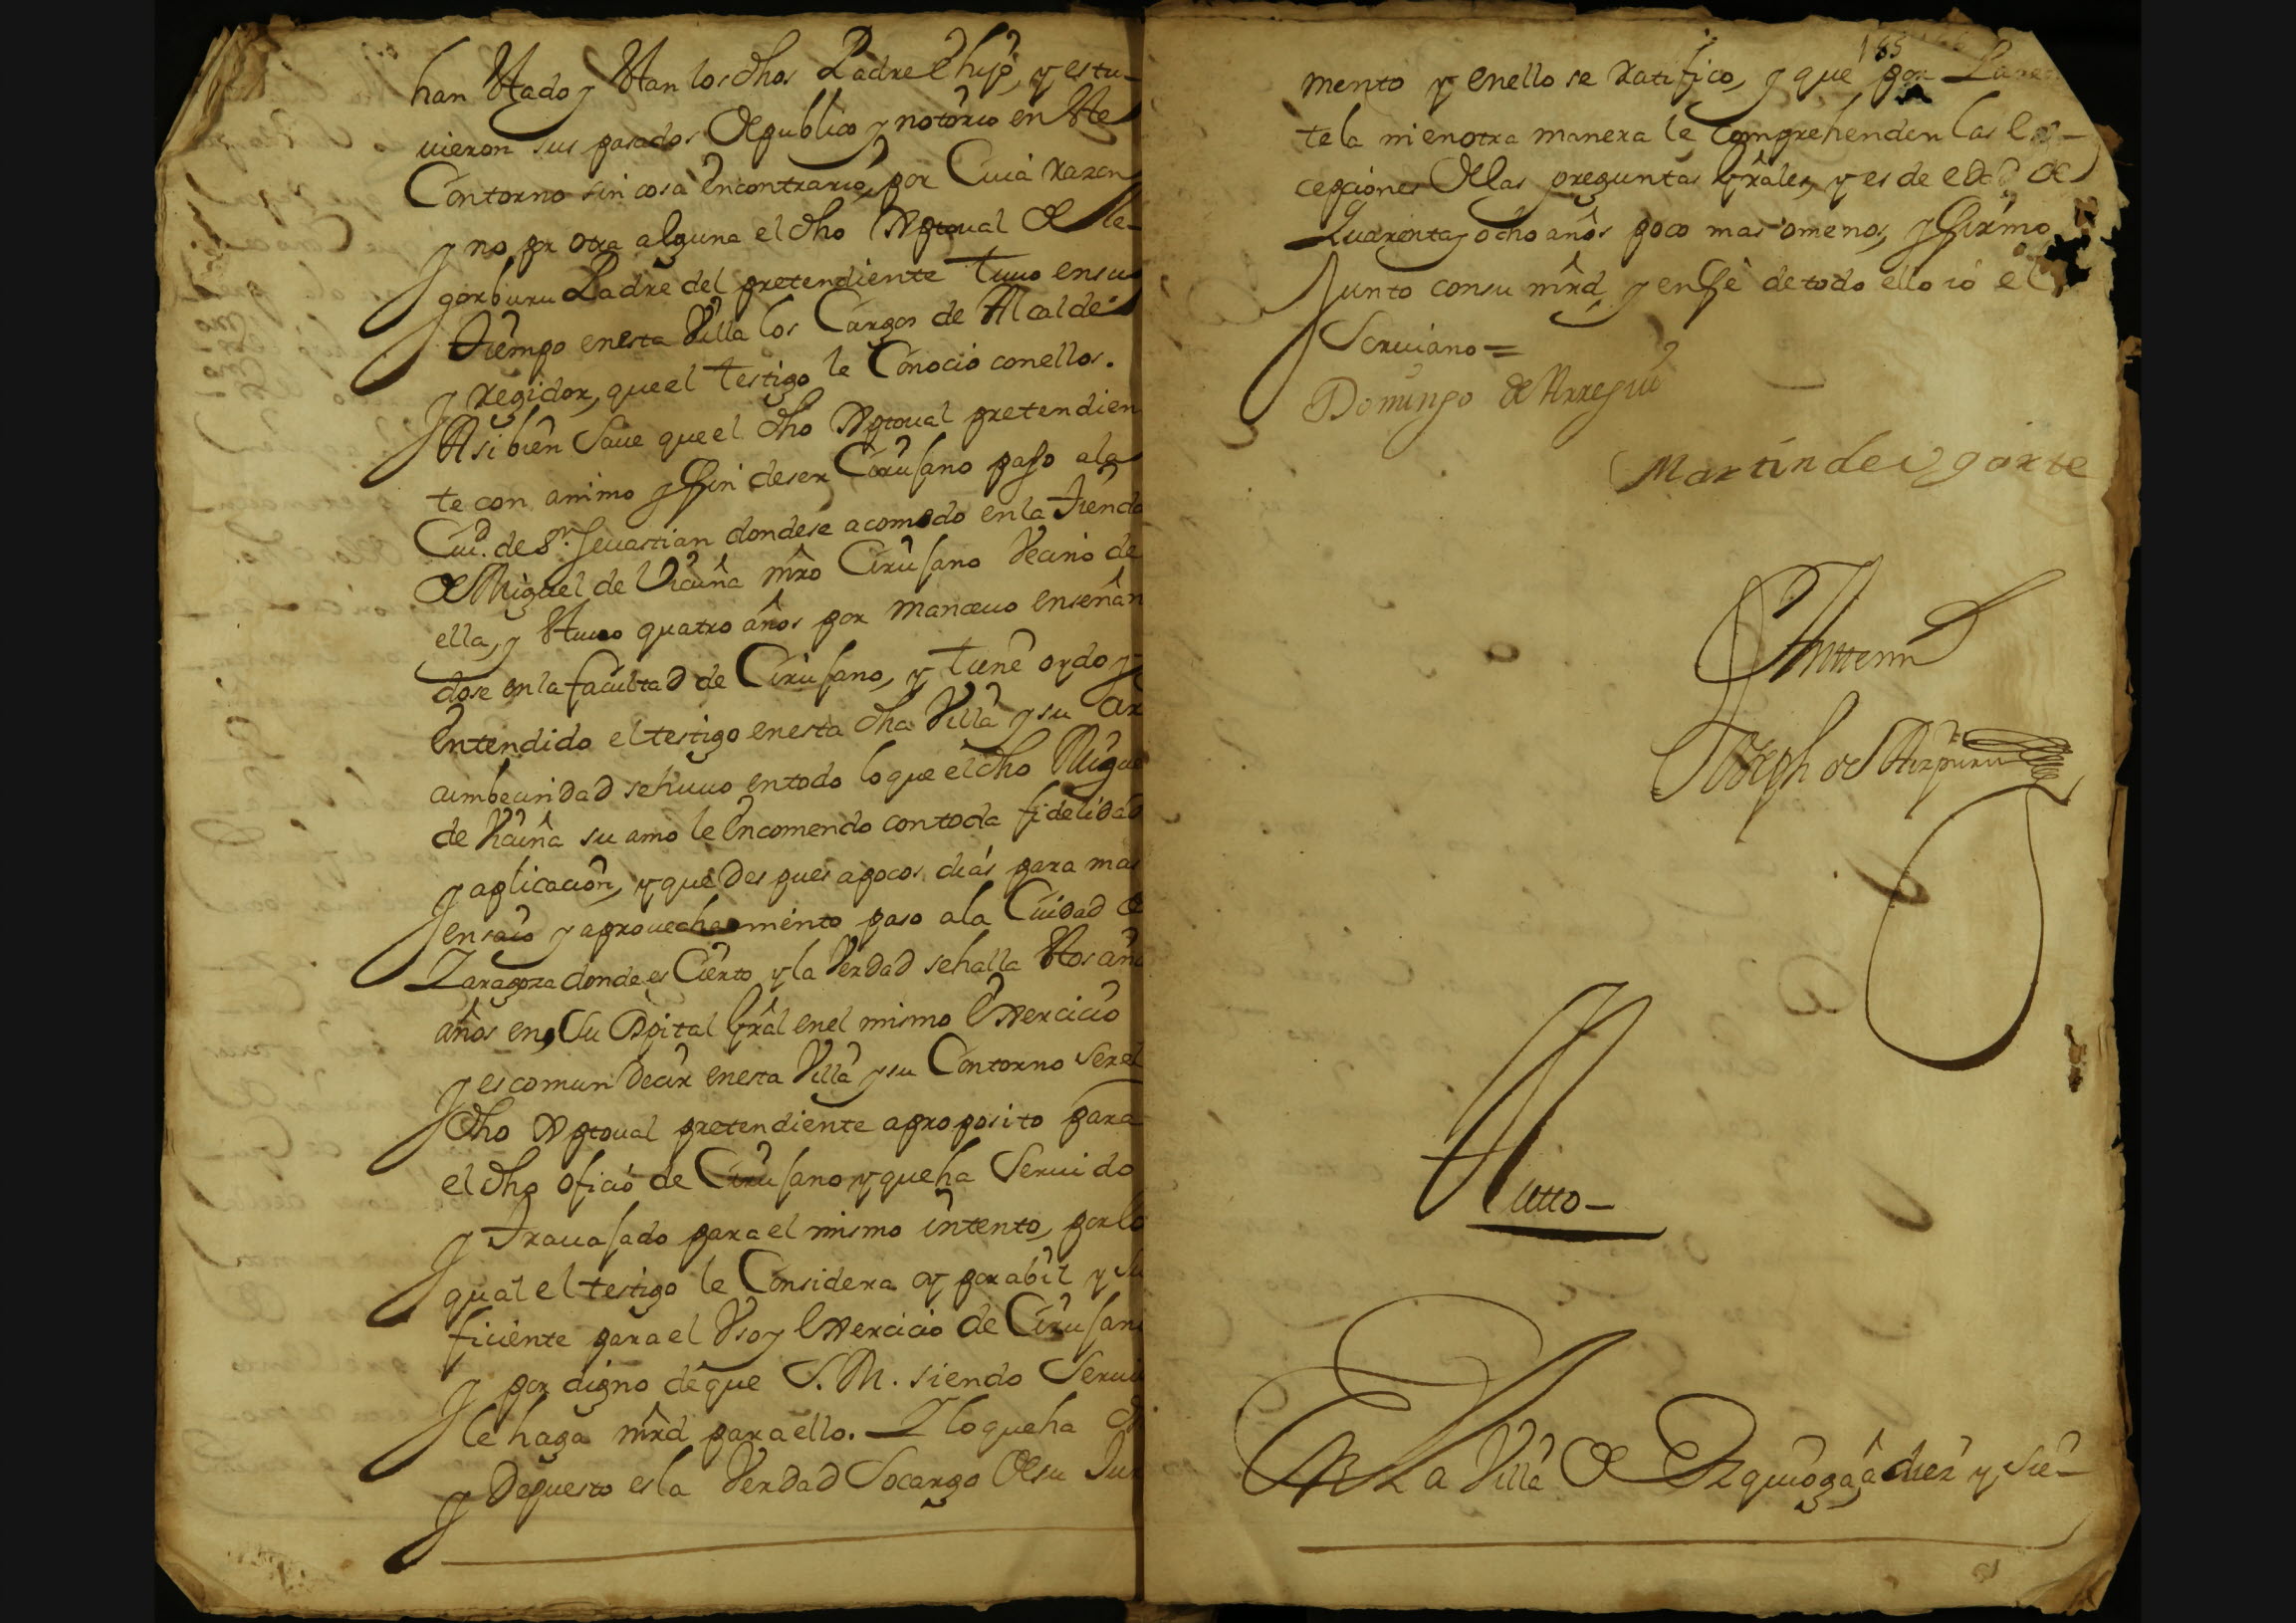 han estado y estan los dhos Padre e hijo, y estu-
uieron sus pasados de publico y notorio en este
Contorno sin cosa en contrario, por Cuia raxon
y no por otra alguna el dho Xptoual de Le-
gorburu Padre del pretendiente tuuo en su
tiempo en esta Villa los Cargos de Alcalde
y regidor, que el testigo le Conocio con ellos.
Asi bien Saue que el dho Xptoual pretendien
te con animo y fin de ser Cirujano passo a la
Ciud. de Sn. Seuastian donde se acomodo en la tienda
de Miguel de Vicuña mro Cirujano Vecino de
ella, y estuuo quatro años por manceuo enseñan
dose en la facultad de Cirujano, y tiene oydo y
entendido el testigo en esta dha Villa y su Cir
cumbecindad se huuo en todo lo que el dho Migue
de Vicuña su amo le encomendo con toda fidelidad
y aplicacion, y que despues a pocos dias para mas
ensaio y aprouechamiento paso a la Ciudad de
Zaragoza donde es Cierto y la Verdad se halla
años en Su Ospital Gral en el mismo exercicio
y es comun decir en esta Villa y su Contorno Ser el
dho Xptoual pretendiente a proposito para
el dho oficio de Cirujano y que ha Seruido
y trauajado para el mismo intento, por lo
qual el testigo le Considera oy por abil y su
ficiente para el Vso y exercicio de Cirujano
y por digno de que S. M. siendo Serui
le haga mrd para ello. Y lo que ha di
y depuesto es la Verdad Socargo de su Jur
185
mento y en ello se ratifico, y que por Paren
tela ni en otra manera le comprehenden las ex-
cepciones de las preguntas Grales, y es de edad de
Quarenta y ocho años poco mas o menos, y firmo
Junto con su mrd y en fe de todo ello io el
Scriuano=
Domingo de Arregui
Martin de Ugarte
Ante mi
Joseph de Aizpuru
Autto-
En La Villa de Ezquioga, a diez y sie-